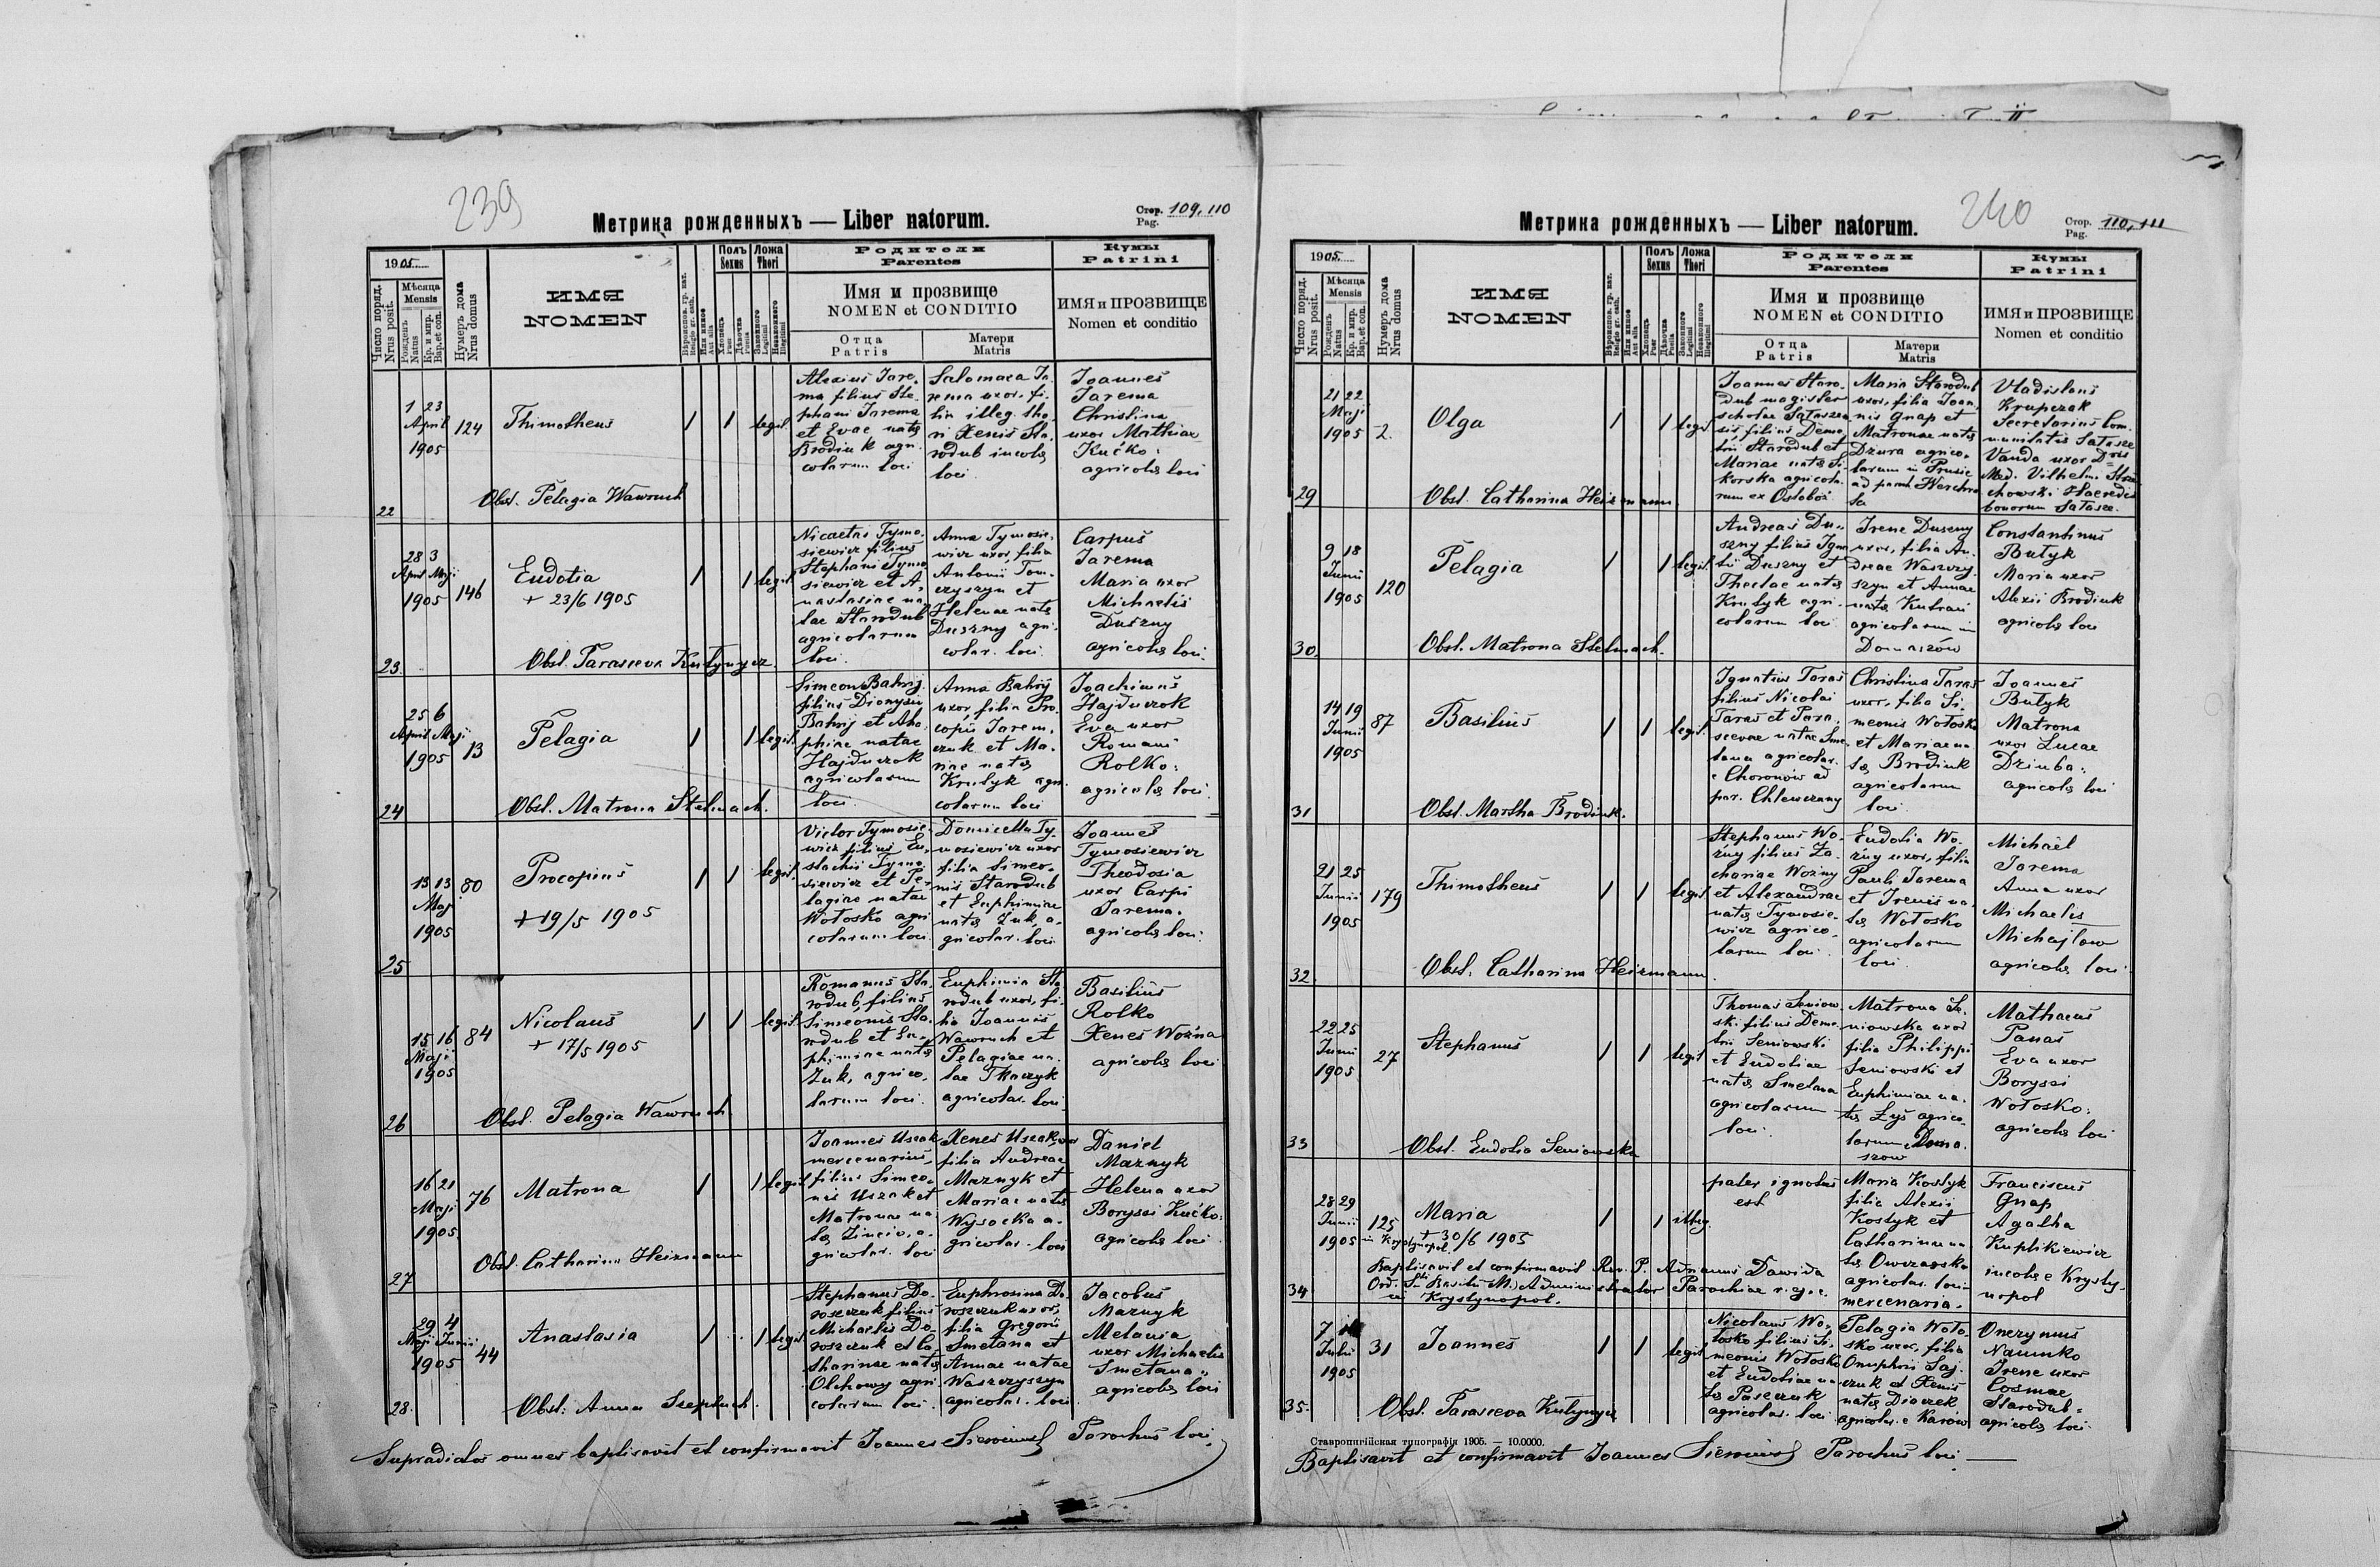 239
Метрика рожденныхъ — Liber natorum.
Стор. 109, 110
Pag.
1905
Число поряд. Nrus posit.
Мѣсяца Mensis
Рожденъ Natus
Кр. и мир. Bap. et con.
Нумеръ дома Nrus domus
ИМЯ
NOMEN
Полъ Sexus
Ложа Thori
Родители
Parentes
Имя и прозвище
NOMEN et CONDITIO
Отца
Patris
Матери
Matris
Кумы
Patrini
ИМЯ и ПРОЗВИЩЕ
Nomen et conditio
22
1 23
April
1905
124
Thimotheus
legit.
Alexius Jare-
ma filius Ste-
phani Jarema
et Evae natae
Brodiuk agri-
colarum loci
Salomaea Ja-
rema uxor, fi-
lia illeg. tho-
ri Xenis Sta-
rodub incolae
loci.
Joannes
Jarema
Christina
uxor Mathiae
Kućko
agricolae loci
Obst. Pelagia Wawruch
23.
28 3
April Maji
1905
146
Eudotia
+ 23/6 1905
legit.
Nicaetas Tymo-
siewicz filius
Stephani Tymo-
siewicz et A-
nastasiae na-
tae Starodub
agricolarum
loci.
Anna Tymosie-
wicz uxor, filia
Antonii Tom-
czyszyn et
Helenae natae
Duszny agri-
colar. loci.
Carpus
Jarema
Maria uxor
Michaelis
Duszny
agricolae loci.
Obst. Parasceva Kułynycz
24
25 6
April Maji
1905
13
Pelagia
legit.
Simeon Bahrij
filius Dionysii
Bahrij et Aha-
phiae natae
Hajduczok
agricolarum
loci.
Anna Bahrij
uxor filia Pro-
copii Jarem-
czuk et Ma-
riae natae
Krutyk agri-
colarum loci
Joachimus
Hajduczok
Eva uxor
Romani
Rolko:
agricolae loci.
Obst. Matrona Stelmach.
25
13 13
Maj
1905
80
Procopius
+ 19/5 1905
legit.
Victor Tymosie-
wicz filius Eu-
stachii Tymo-
siewicz et Pe-
lagiae natae
Wołosko agri-
colarum loci.
Domicella Ty-
mosiewicz uxor
filia Simeo-
nis Starodub
et Euphimiae
natae Żuk, a-
gricolar. loci
Joannes
Tymosiewicz
Theodosia
uxor Carpi
Jarema.
agricolae loci.
26
15 16
Maji
1905
84
Nicolaus
+ 17/5 1905
legit.
Romanus Sta-
rodub, filius
Simeonis Sta-
rodub et Eu-
phimiae natae
Żuk, agrico-
larum loci.
Euphimia Sta-
rodub uxor, fi-
lia Joannis
Wawruch et
Pelagiae na-
tae Tkaczyk
agricolar. loci
Basilius
Rolko
Xenes Woźna
agricolae loci
Obst. Pelagia Wawruch
27
16 21
Maji
1905
76
Matrona
legit.
Joannes Uszak
mercenarius,
filius Simeo-
nis Uszak et
Matronae na-
tae Zinciv, a-
gricolar. loci
Xenes Uszak, uxor
filia Andreae
Maznyk et
Mariae natae
Wysocka a-
gricolar. loci
Daniel
Maznyk
Helena uxor
Boryssi Kućko:
agricolae loci.
Obst. Catharina Heizmann
28.
29 4
Maji Junii
1905
44
Anastasia
legit.
Stephanus Do-
roszczuk filius
Michaelis Do-
roszczuk et Ca-
tharinae natae
Olchowy agri-
colarum loci.
Euphrosina Do-
roszczuk uxor,
filia Gregorii
Smetana et
Annae natae
Waszczyszyn
agricolar. loci.
Jacobus
Maznyk
Melania
uxor Michaelis
Smetana
agricolae loci
Obst: Anna Szeptuch.
Supradictos omnes baptisavit et confirmavit Joannes Parochus loci.
240
Метрика рожденныхъ — Liber natorum.
Стор. 110, 111
Pag.
1905
Число поряд. Nrus posit.
Мѣсяца Mensis
Рожденъ Natus
Кр. и мир. Bap. et con.
Нумеръ дома Nrus domus
ИМЯ
NOMEN
Полъ Sexus
Ложа Thori
Родители
Parentes
Имя и прозвище
NOMEN et CONDITIO
Отца
Patris
Матери
Matris
Кумы
Patrini
ИМЯ и ПРОЗВИЩЕ
Nomen et conditio
29
21 22
Maji
1905
2.
Olga
legit.
Joannes Staro-
dub magister
scholae
filius Deme-
trii Starodub et
Mariae natae Si-
korska agricola-
rum ex Ostobóż
Maria Starodub
uxor, filia Joan-
nis Gnap et
Matronae natae
Dzura agrico-
larum in Prusie
ad paroch.
Vladislaus
Krupczak
Secretarius Com-
munitatis
Vanda uxor Dris
Med. Vilhelmi
haeredis
bonorum
Obst. Catharina Heizmann.
30.
9 18
Junii
1905
120
Pelagia
legit.
Andreas Du-
szny filius Igna-
tii Duszny et
Theclae natae
Krutyk agri-
colarum loci
Irene Duszny
uxor, filia An-
dreae Waszczy-
szyn et Annae
natae Kutrań
agricolarum in
Domaszów
Constantinus
Butyk
Maria uxor
Alexii Brodiuk
agricolae loci
Obst. Matrona Stelmach.
31
14 19
Junii
1905
87
Basilius
legit.
Ignatius Taras
filius Nicolai
Taras et Para-
scevae natae Sme-
tana agricolar.
e Choronów ad
par. Chlewczany
Christina Taras
uxor, filia Si-
meonis Wołosko
et Mariae na-
tae Brodiuk
agricolarum
loci.
Joannes
Butyk
Matrona
uxor Lucae
Dziuba:
agricolae loci
Obst. Martha Brodiuk.
32.
21 25
Junii
1905
179
Thimotheus
legit.
Stephanus Wo-
źny filius Za-
chariae Woźny
et Alexandrae
natae Tymosie-
wicz agrico-
larum loci.
Eudotia Wo-
źny uxor, filia
Pauli Jarema
et Irenis na-
tae Wołosko
agricolarum
loci.
Michaël
Jarema
Anna uxor
Michaelis
Michajłow
agricolae loci
Obst. Catharina Heizmann.
33
22 25
Junii
1905
27
Stephanus
legit.
Thomas Seniow-
ski filius Deme-
trii Seniowski
et Eudotiae
natae Smetana
agricolarum
loci.
Matrona Se-
niowska uxor
filia Philippi
Seniowski et
Euphimiae na-
tae Łyś agrico-
larum Doma-
szow
Mathaeus
Panas
Eva uxor
Boryssi
Wołosko:
agricolae loci
Obst. Eudotia Seniowska
34
28 29
Junii
1905
125
in Krystynopol.
Maria
+ 30/6 1905
illeg.
pater ignotus
est
Maria Kostyk
filia Alexii
Kostyk et
Catharinae na-
tae Owczarska
agricolar. loci
mercenaria.
Franciscus
Gnap
Agatha
Kuplikiewicz
incolae Krysty-
nopol
Baptisavit et confirmavit Rev. P. Adrianus Dawida
Ord. Sti Basilii M. Administrator Parochiae r. g. c.
in Krystynopol.
35.
7
Julii
1905
31
Joannes
legit.
Nicolaus Wo-
łosko filius Si-
meonis Wołosko
et Eudotiae na-
tae Paseczuk
agricolar. loci
Pelagia Woło-
sko uxor, filia
Onuphrii Saj-
czuk et Xenis
natae Diaczek
agricolar. e Karów
Onezymus
Naumko
Irene uxor
Cosmae
Starodub
agricolae loci
Obst. Parasceva Kułynycz
Ставропигійская типографія 1905. — 10.0000.
Baptisavit et confirmavit Joannes Parochus loci